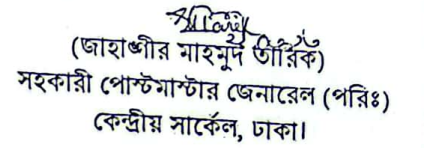 (জাহাঙ্গীর মাহমুদ তারিক)
সহকারী পোস্টমাস্টার জেনারেল (পরিঃ)
কেন্দ্রীয় সার্কেল, ঢাকা।